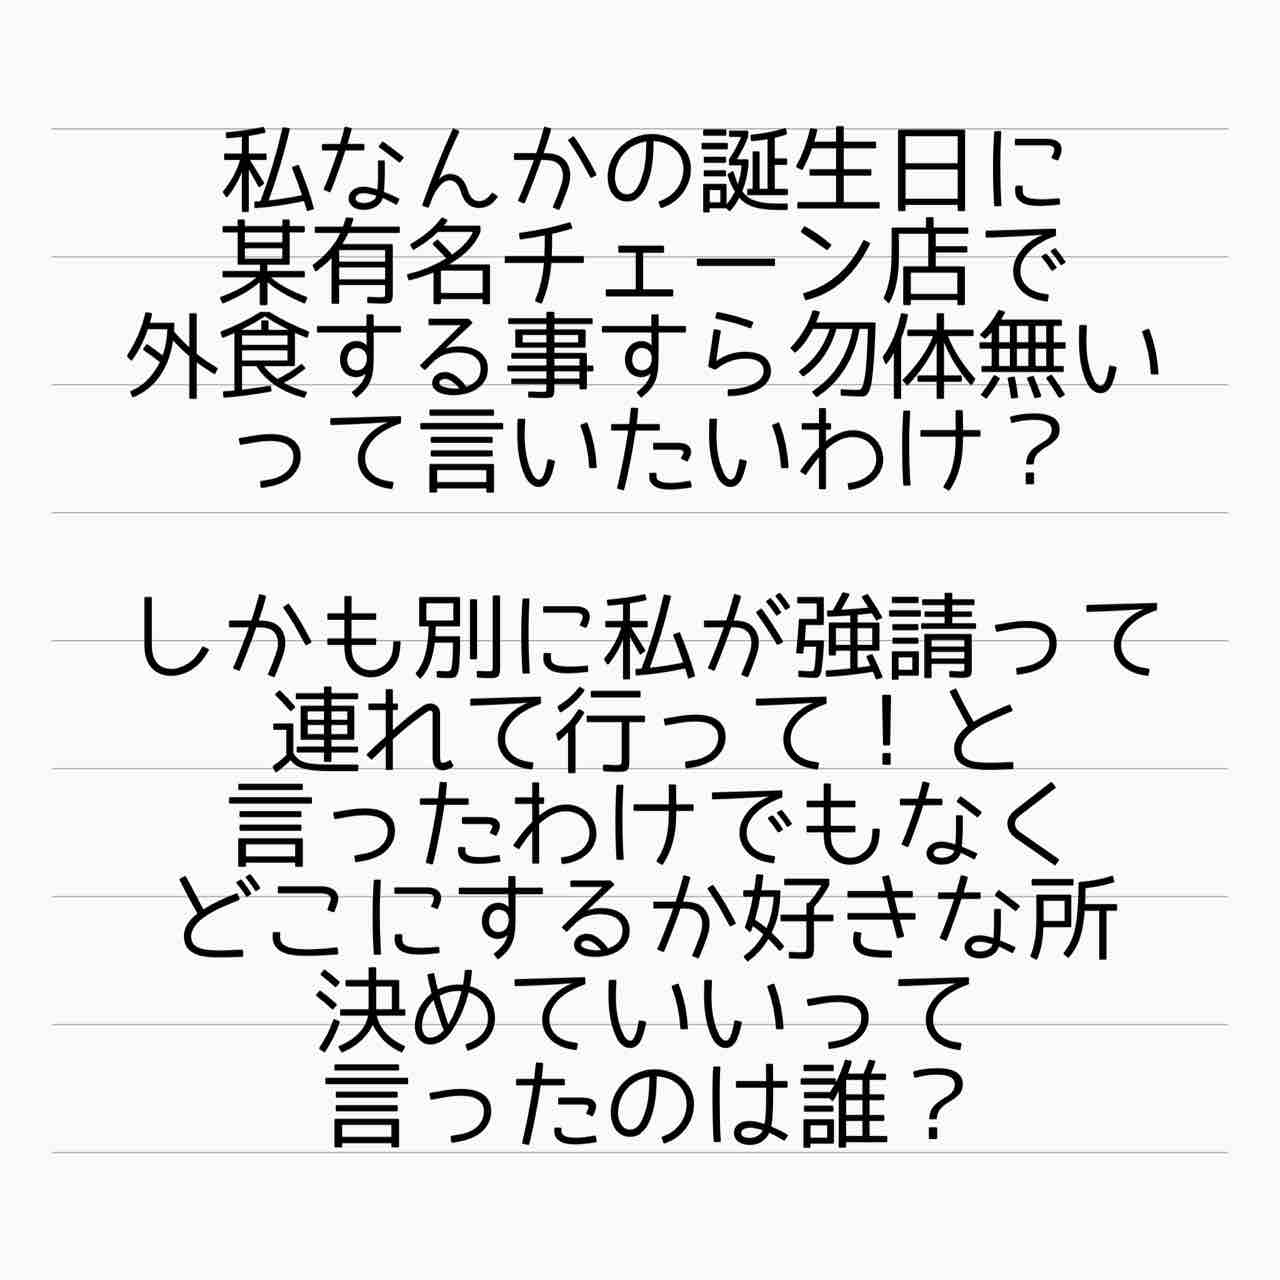 私なんかの誕生日に
某有名チェーン店で
外食する事すら勿体無い
って言いたいわけ？
しかも別に私が強請って
連れて行って！と
言ったわけでもなく
どこにするか好きな所
決めていいって
言ったのは誰？